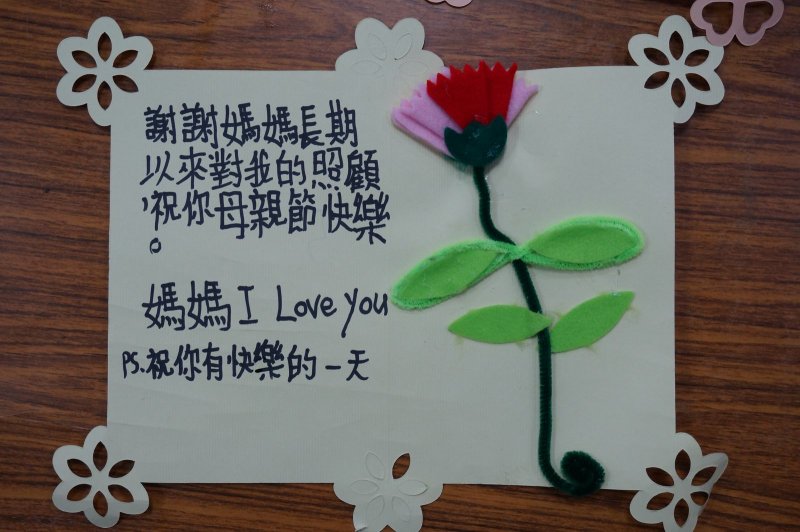 謝謝媽媽長期
以來對我的照顧
,祝你母親節快樂
。
媽媽 I Love you
PS.祝你有快樂的一天